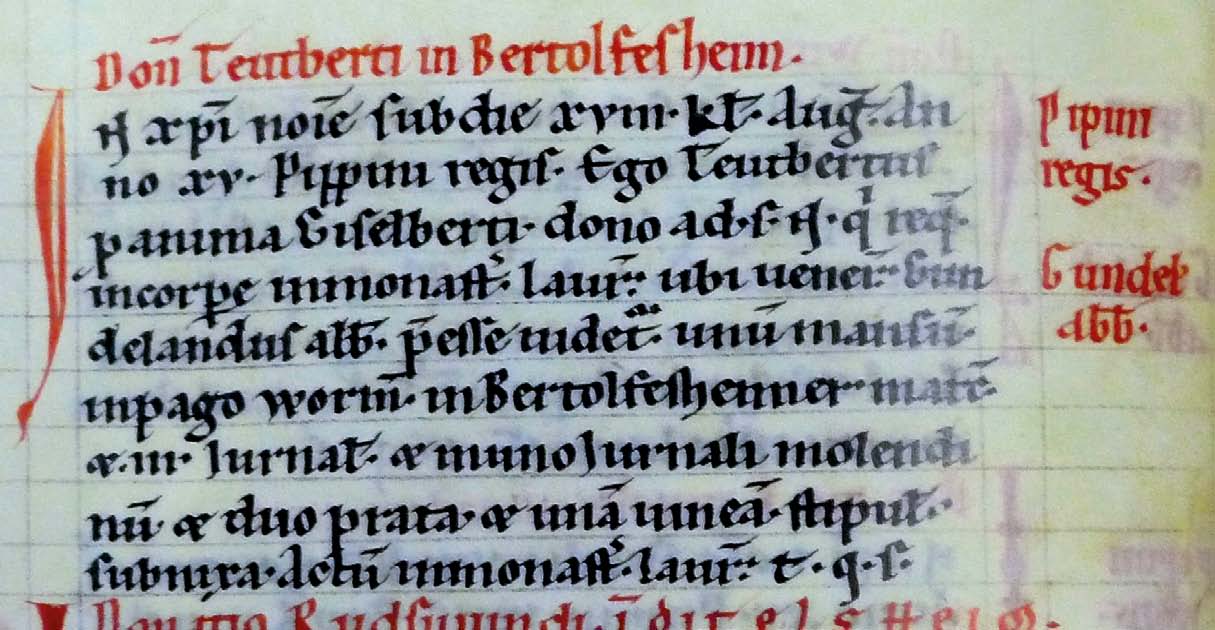 Don̄ Teutberti in Bertolfesheim.
In xp̄i noīe sub die xviii. kl̄. Aug̅. An
no xv. Pippini regis. Ego Teutbertus
p anima Giselberti. dono ad. s. N. q̍ req̄.
in corpe in monast̄. laur̄. ubi uener̄. Gun
delandus abb̄. p̄esse uidet̄. unū mansū.
in pago worm̄. in Bertolfesheimer marc̄.
& .iii. Jurnal̄. & in uno Jurnali molendi
nū. & duo prata. & unā uineā. stipul̄.
subnixa. Actū in monast̄. laur̄. t̄. q. s.
Donatio Rudsuuindi. ī Ditelsheim.
Pipini
regis.
Gundel̄
abb̄.